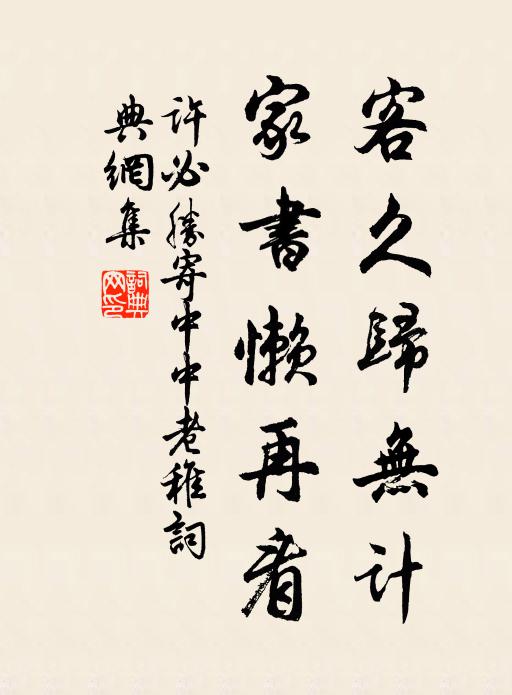 客久歸無計
家書懶再看
許必勝寄中中老稚詞
典網集
詞典
网印